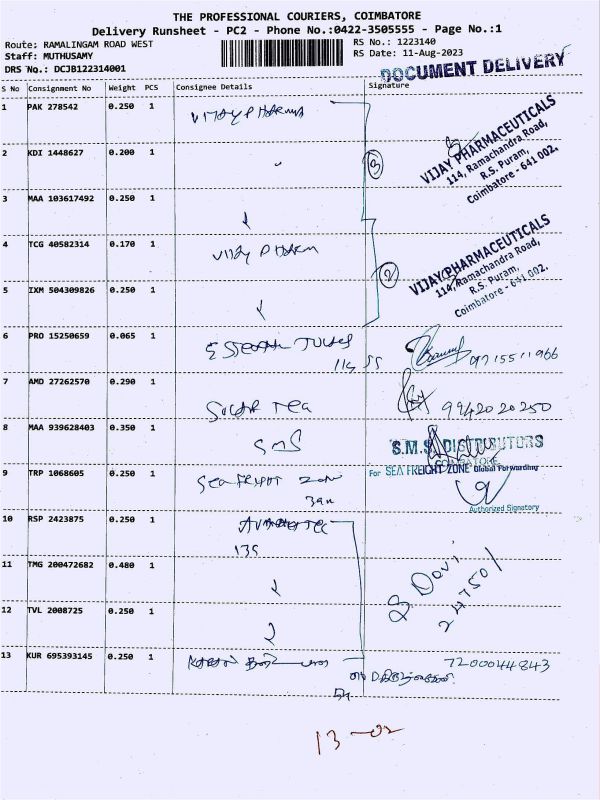 THE PROFESSIONAL COURIERS, COIMBATORE
Delivery Runsheet - PC2 - Phone No.:0422-3505555 - Page No.:1
Route: RAMALINGAM ROAD WEST
RS No.: 1223140
Staff: MUTHUSAMY
RS Date: 11-Aug-2023
DRS No.: DCJB122314001
DOCUMENT DELIVERY
S No Consignment No Weight PCS Consignee Details Signature
1 PAK 278542 0.250 1 VIJAY PHARMA
VIJAY PHARMACEUTICALS
114, Ramachandra Road,
R.S. Puram,
Coimbatore - 641 002.
2 KDI 1448627 0.200 1
3
3 MAA 103617492 0.250 1
4 TCG 40582314 0.170 1 VIJAY PHARM
2
VIJAY PHARMACEUTICALS
114, Ramachandra Road,
R.S. Puram,
Coimbatore - 641 002.
5 IXM 504309826 0.250 1
6 PRO 15250659 0.065 1
7 AMD 27262570 0.290 1
9942020250
8 MAA 939628403 0.350 1 SMS
S.M.S. DISTRIBUTORS
COIMBATORE
9 TRP 1068605 0.250 1 Sea Freight Zone
For SEA FREIGHT ZONE Global Forwarding
Authorized Signatory
10 RSP 2423875 0.250 1
11 TMG 200472682 0.480 1
S. Devi
247501
12 TVL 2008725 0.250 1
13 KUR 695393145 0.250 1
7200044843
13-02